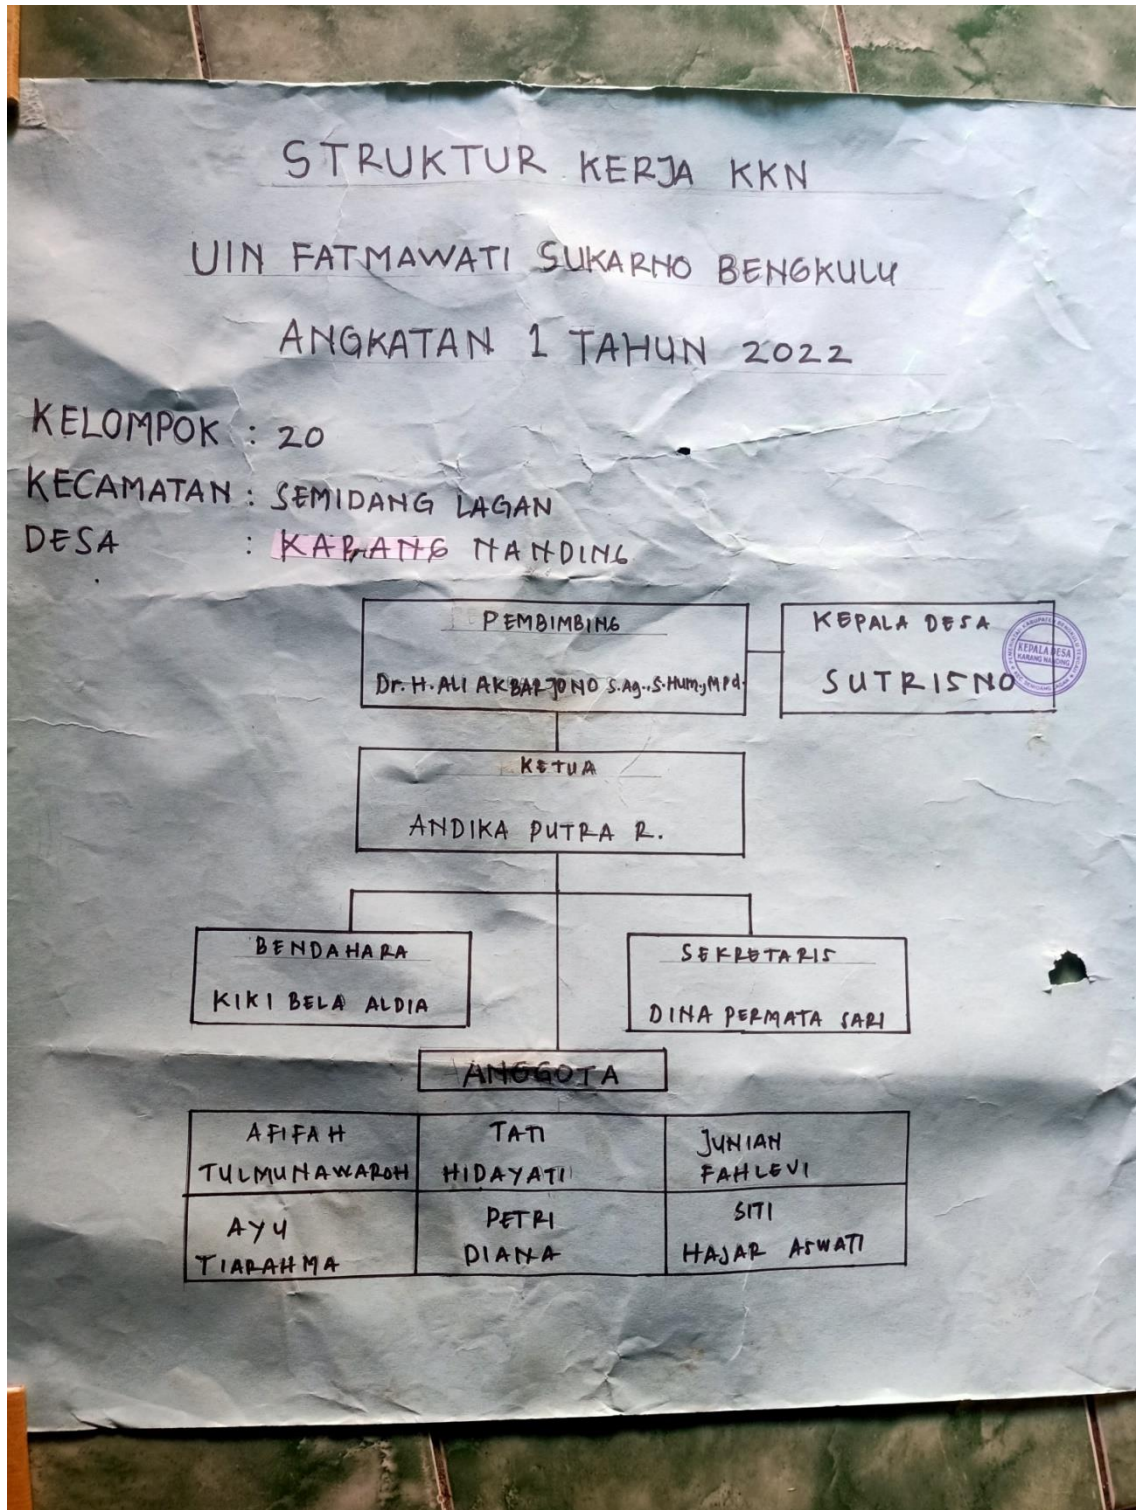 STRUKTUR KERJA KKN
UIN FATMAWATI SUKARNO BENGKULU
ANGKATAN 1 TAHUN 2022
KELOMPOK : 20
KECAMATAN : SEMIDANG LAGAN
DESA : KARANG NANDING
PEMBIMBING
Dr. H. ALI AKBARJONO S.Ag., S.Hum., M.Pd.
KEPALA DESA
SUTRISNO
KEPALA DESA
KARANG NANDING
KETUA
ANDIKA PUTRA R.
BENDAHARA
KIKI BELA ALDIA
SEKRETARIS
DINA PERMATA SARI
ANGGOTA
AFIFAH
TULMUNAWAROH
TATI
HIDAYATI
JUNIAN
FAHLEVI
AYU
TIARAHMA
PETRI
DIANA
SITI
HAJAR ASWATI